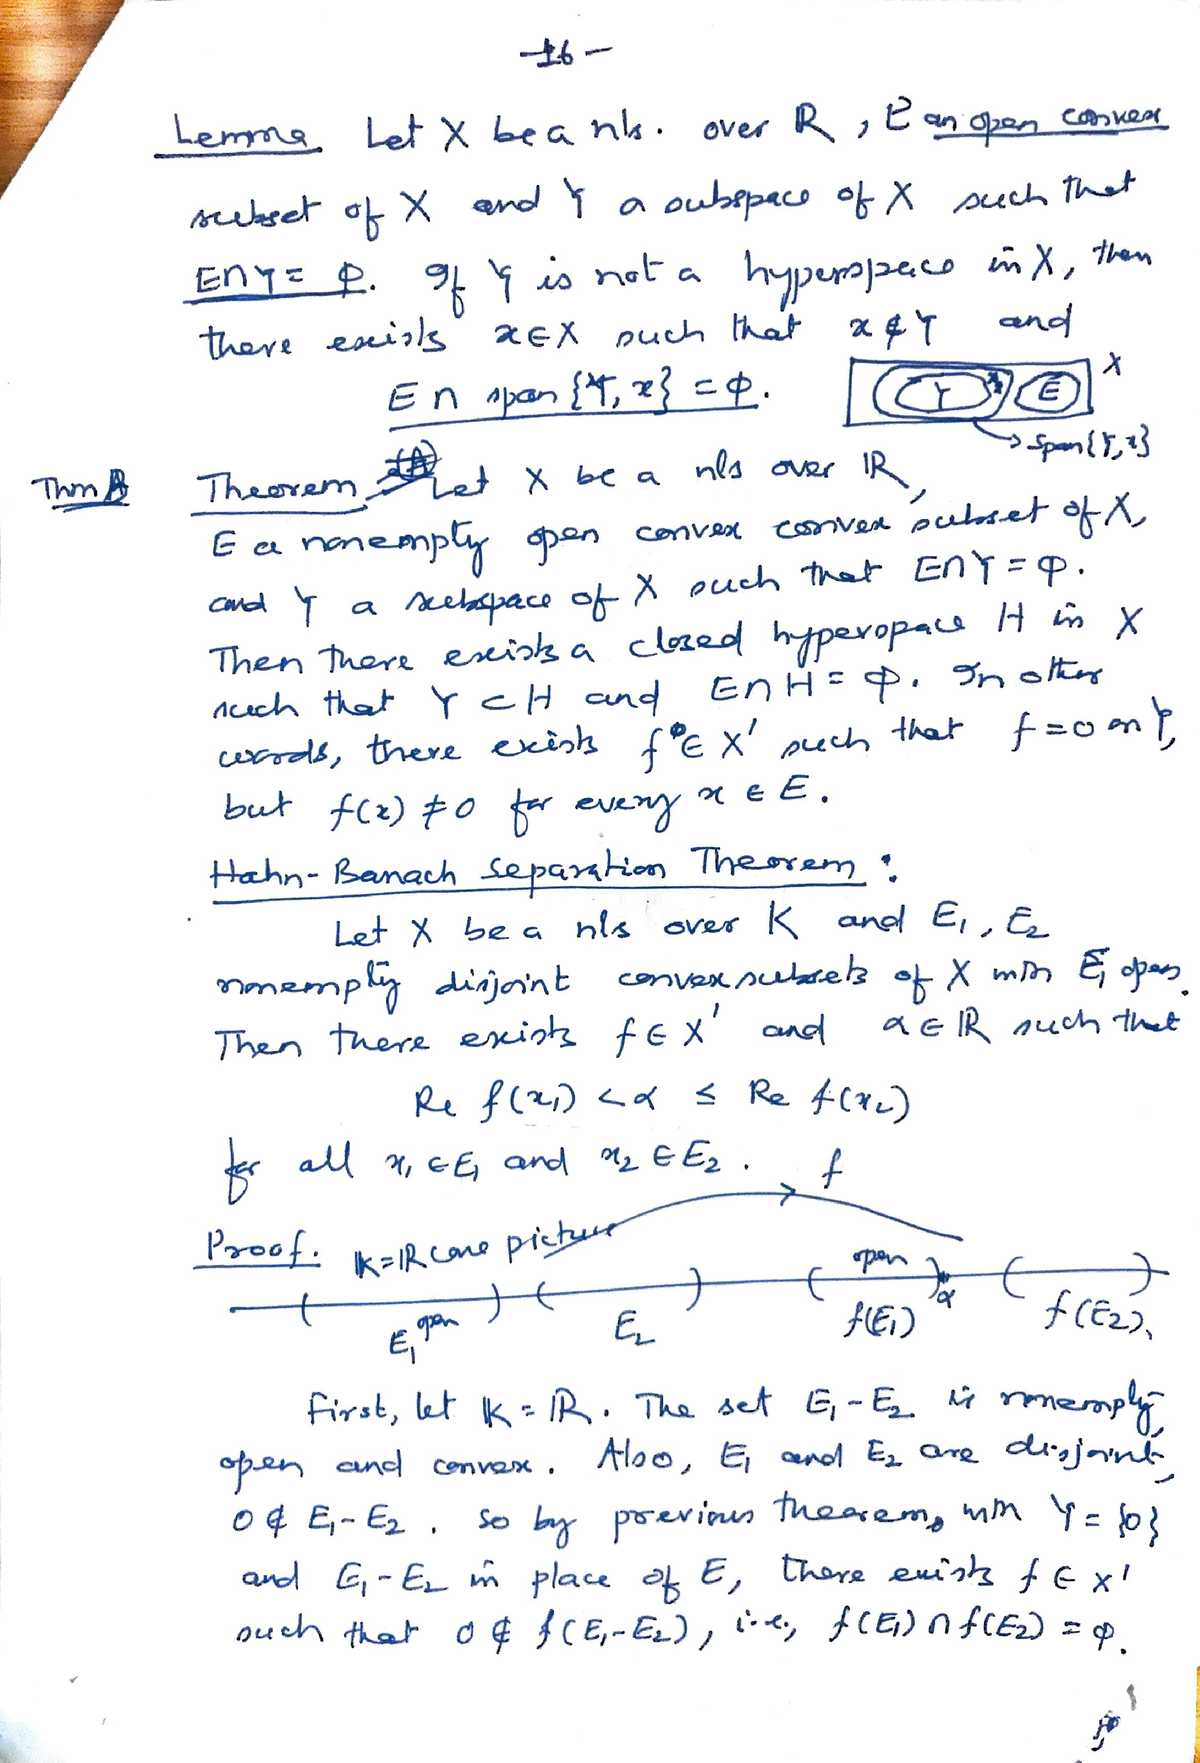 -16-
Lemma Let X be a nls. over R, E an open convex
subset of X and Y a subspace of X such that
E∩Y = φ. If Y is not a hyperspace in X, then
there exists x∈X such that x∉Y and
E ∩ span {Y, x} = φ.
X
Y x E
→ span{Y, x}
Thm A Theorem Let X be a nls over IR,
E a nonempty open convex convex subset of X,
and Y a subspace of X such that E∩Y = φ.
Then there exists a closed hyperspace H in X
such that Y ⊂ H and E∩H = φ. In other
words, there exists f ∈ X' such that f = 0 on Y,
but f(x) ≠ 0 for every x ∈ E.
Hahn-Banach Separation Theorem:
Let X be a nls over K and E₁, E₂
nonempty disjoint convex subsets of X with E₁ open.
Then there exists f ∈ X' and α ∈ IR such that
Re f(x₁) < α ≤ Re f(x₂)
for all x₁ ∈ E₁ and x₂ ∈ E₂.
f
Proof. IK = IR case picture
open
E₁ open E₂ f(E₁) α f(E₂)
First, let IK = IR. The set E₁-E₂ is nonempty,
open and convex. Also, E₁ and E₂ are disjoint,
0 ∉ E₁-E₂. So by previous theorem, with Y = {0}
and E₁-E₂ in place of E, there exists f ∈ X'
such that 0 ∉ f(E₁-E₂), i.e., f(E₁) ∩ f(E₂) = φ.